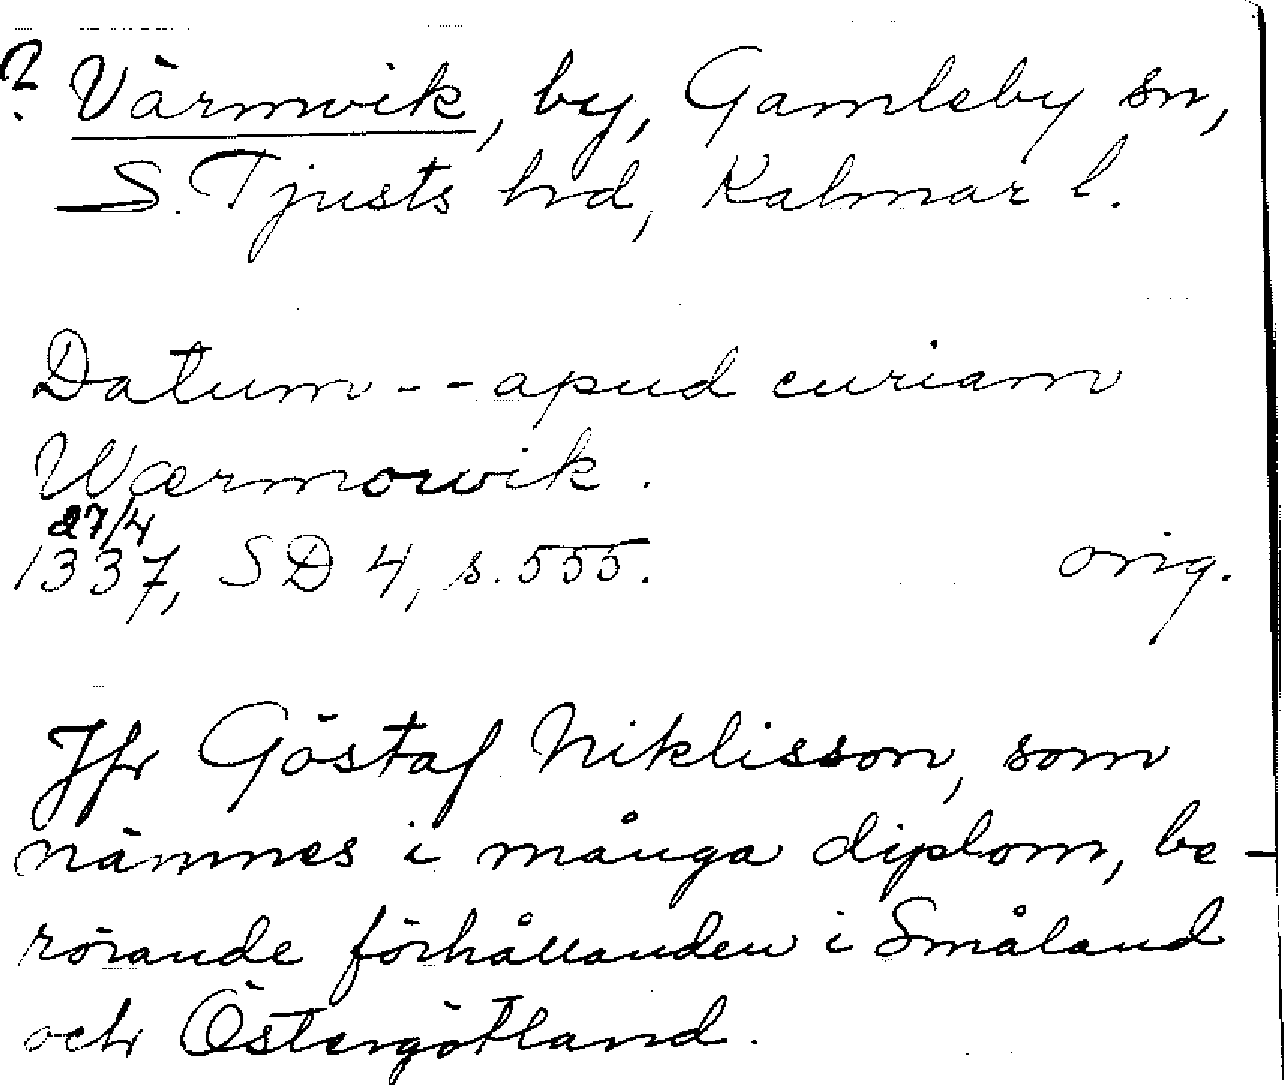 ? Värmvik, by, Gamleby sn,
S. Tjusts hd, Kalmar l.
Datum -- apud curiam
Wærmorwik.
27/4
1337, SD 4, s. 555. orig.
Jfr Göstaf Niklisson, som
nämnes i många diplom, be-
rörande förhållanden i Småland
och Östergötland.